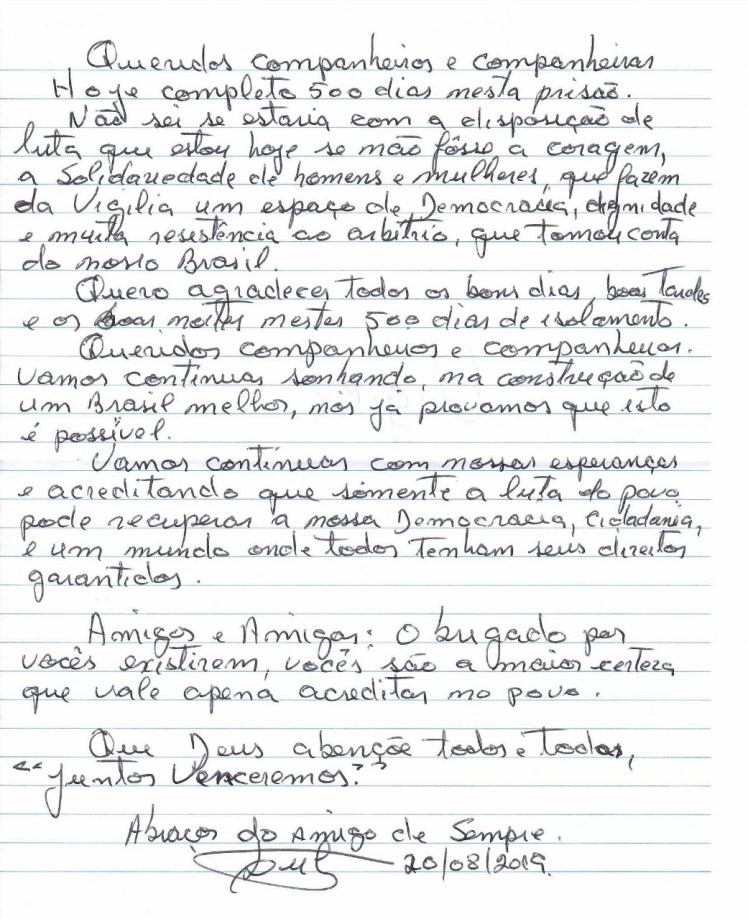 Queridos companheiros e companheiras
Hoje completo 500 dias nesta prisão.
Não sei se estaria com a disposição de
luta que estou hoje se não fôsse a coragem,
a Solidariedade de homens e mulheres, que fazem
da Vigilia um espaço de Democracia, dignidade
e muita resistência ao arbítrio, que tomou conta
do nosso Brasil.
Quero agradecer todos os bons dias, boas Tardes
e os boas noites nestes 500 dias de isolamento.
Queridos companheiros e companheiras.
Vamos continuar sonhando, na construção de
um Brasil melhor, nós já provamos que isto
é possível.
Vamos continuar com nossas esperanças
e acreditando que sómente a luta do povo
pode recuperar a nossa Democracia, Cidadania,
e um mundo onde todos Tenham seus direitos
garantidos.
Amigos e Amigas: Obrigado por
vocês existirem, vocês são a maior certeza
que vale apena acreditar no povo.
Que Deus abençõe todos e todas,
"Juntos Venceremos."
Abraços do Amigo de Sempre.
20/08/2019.